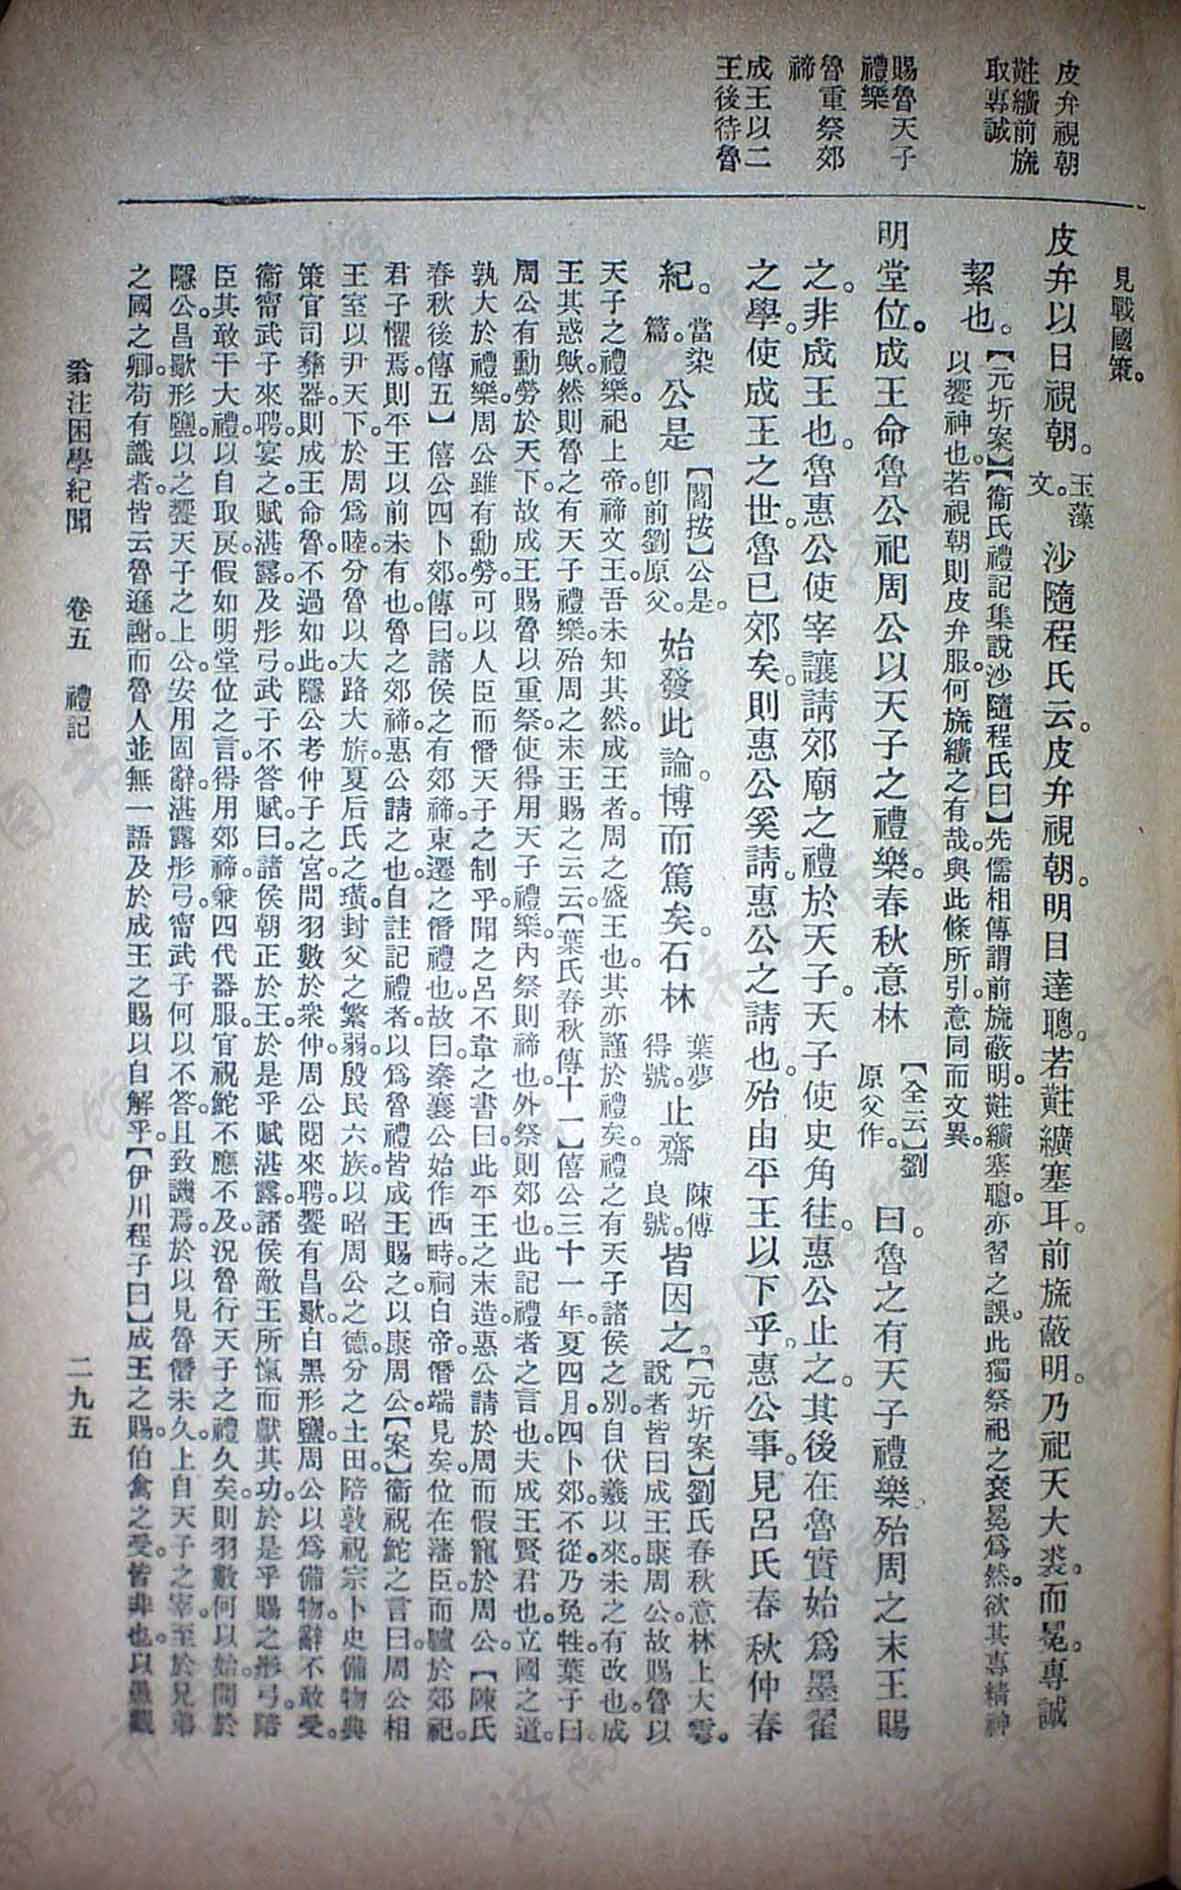 皮弁視朝
黈纊前旒
取專誠
賜魯天子
禮樂
魯重祭郊
禘
成王以二
王後待魯
見戰國策。
皮弁以日視朝。玉藻文。沙隨程氏云。皮弁視朝。明目達聰。若黈纊塞耳。前旒蔽明。乃祀天大裘。而冕。專誠
絜也。【元圻案】【衞氏禮記集說沙隨程氏曰】先儒相傳謂前旒蔽明。黈纊塞聰。亦習之誤。此獨祭祀之袞冕爲然。欲其專精神
以饗神也。若視朝則皮弁服。何旒纊之有哉。與此條所引。意同而文異。
明堂位。成王命魯公祀周公以天子之禮樂。春秋意林【全云】劉原父作。曰。魯之有天子禮樂。殆周之末王賜
之。非成王也。魯惠公使宰讓請郊廟之禮於天子。天子使史角往。惠公止之。其後在魯。實始爲墨翟
之學。使成王之世。魯已郊矣。則惠公奚請。惠公之請也。殆由平王以下乎。惠公事。見呂氏春秋仲春
紀。當染篇。公是【閻按】公是。卽前劉原父。始發此論。博而篤矣。石林葉夢得號。止齋陳傅良號。皆因之。【元圻案】劉氏春秋意林上大雩。
說者皆曰成王康周公。故賜魯以
天子之禮樂。祀上帝。禘文王。吾未知其然。成王者。周之盛王也。其亦謹於禮矣。禮之有天子諸侯之別。自伏羲以來。未之有改也。成
王其惑歟。然則魯之有天子禮樂。殆周之末王賜之云云。【葉氏春秋傳十一】僖公三十一年夏四月。四卜郊。不從。乃免牲。葉子曰。
周公有勳勞於天下。故成王賜魯以重祭。使得用天子禮樂。內祭則禘也。外祭則郊也。此記禮者之言也。夫成王賢君也。立國之道。
孰大於禮樂。周公雖有勳勞。可以人臣而僭天子之制乎。聞之呂不韋之書曰。此平王之末造。惠公請於周而假寵於周公。【陳氏
春秋後傳五】僖公四卜郊。傳曰。諸侯之有郊禘。東遷之僭禮也。故曰。秦襄公始作西畤。祠白帝。僭端見矣。位在藩臣。而臚於郊祀。
君子懼焉。則平王以前未有也。魯之郊禘。惠公請之也。自註記禮者。以爲魯禮皆成王賜之。以康周公。【案】衞祝鮀之言曰。周公相
王室以尹天下。於周爲睦。分魯以大路大旂。夏后氏之璜。封父之繁弱。殷民六族。以昭周公之德。分之土田。陪敦祝宗卜史。備物典
策。官司彝器。則成王命魯。不過如此。隱公考仲子之宮。問羽數於衆仲。周公閱來聘。饗有昌歜。白黑形鹽。周公以爲備物。辭不敢受。
衞甯武子來聘。宴之。賦湛露。及彤弓。武子不答賦。曰。諸侯朝正於王。於是乎賦湛露。諸侯敵王所愾。而獻其功。於是乎賜之彤弓。陪
臣其敢干大禮以自取戾。假如明堂位之言。得用郊禘。兼四代器服。官祝鮀不應不及。況魯行天子之禮久矣。則羽數何以始問於
隱公。昌歜形鹽。以之饗天子之上公。安用固辭。湛露彤弓。甯武子何以不答。且致譏焉。於以見魯僭未久。上自天子之宰。至於兄弟
之國之卿。苟有識者。皆云魯遜謝。而魯人並無一語及於成王之賜以自解乎。【伊川程子曰】成王之賜。伯禽之受。皆非也。以愚觀
翁注困學紀聞　卷五　禮記　二九五